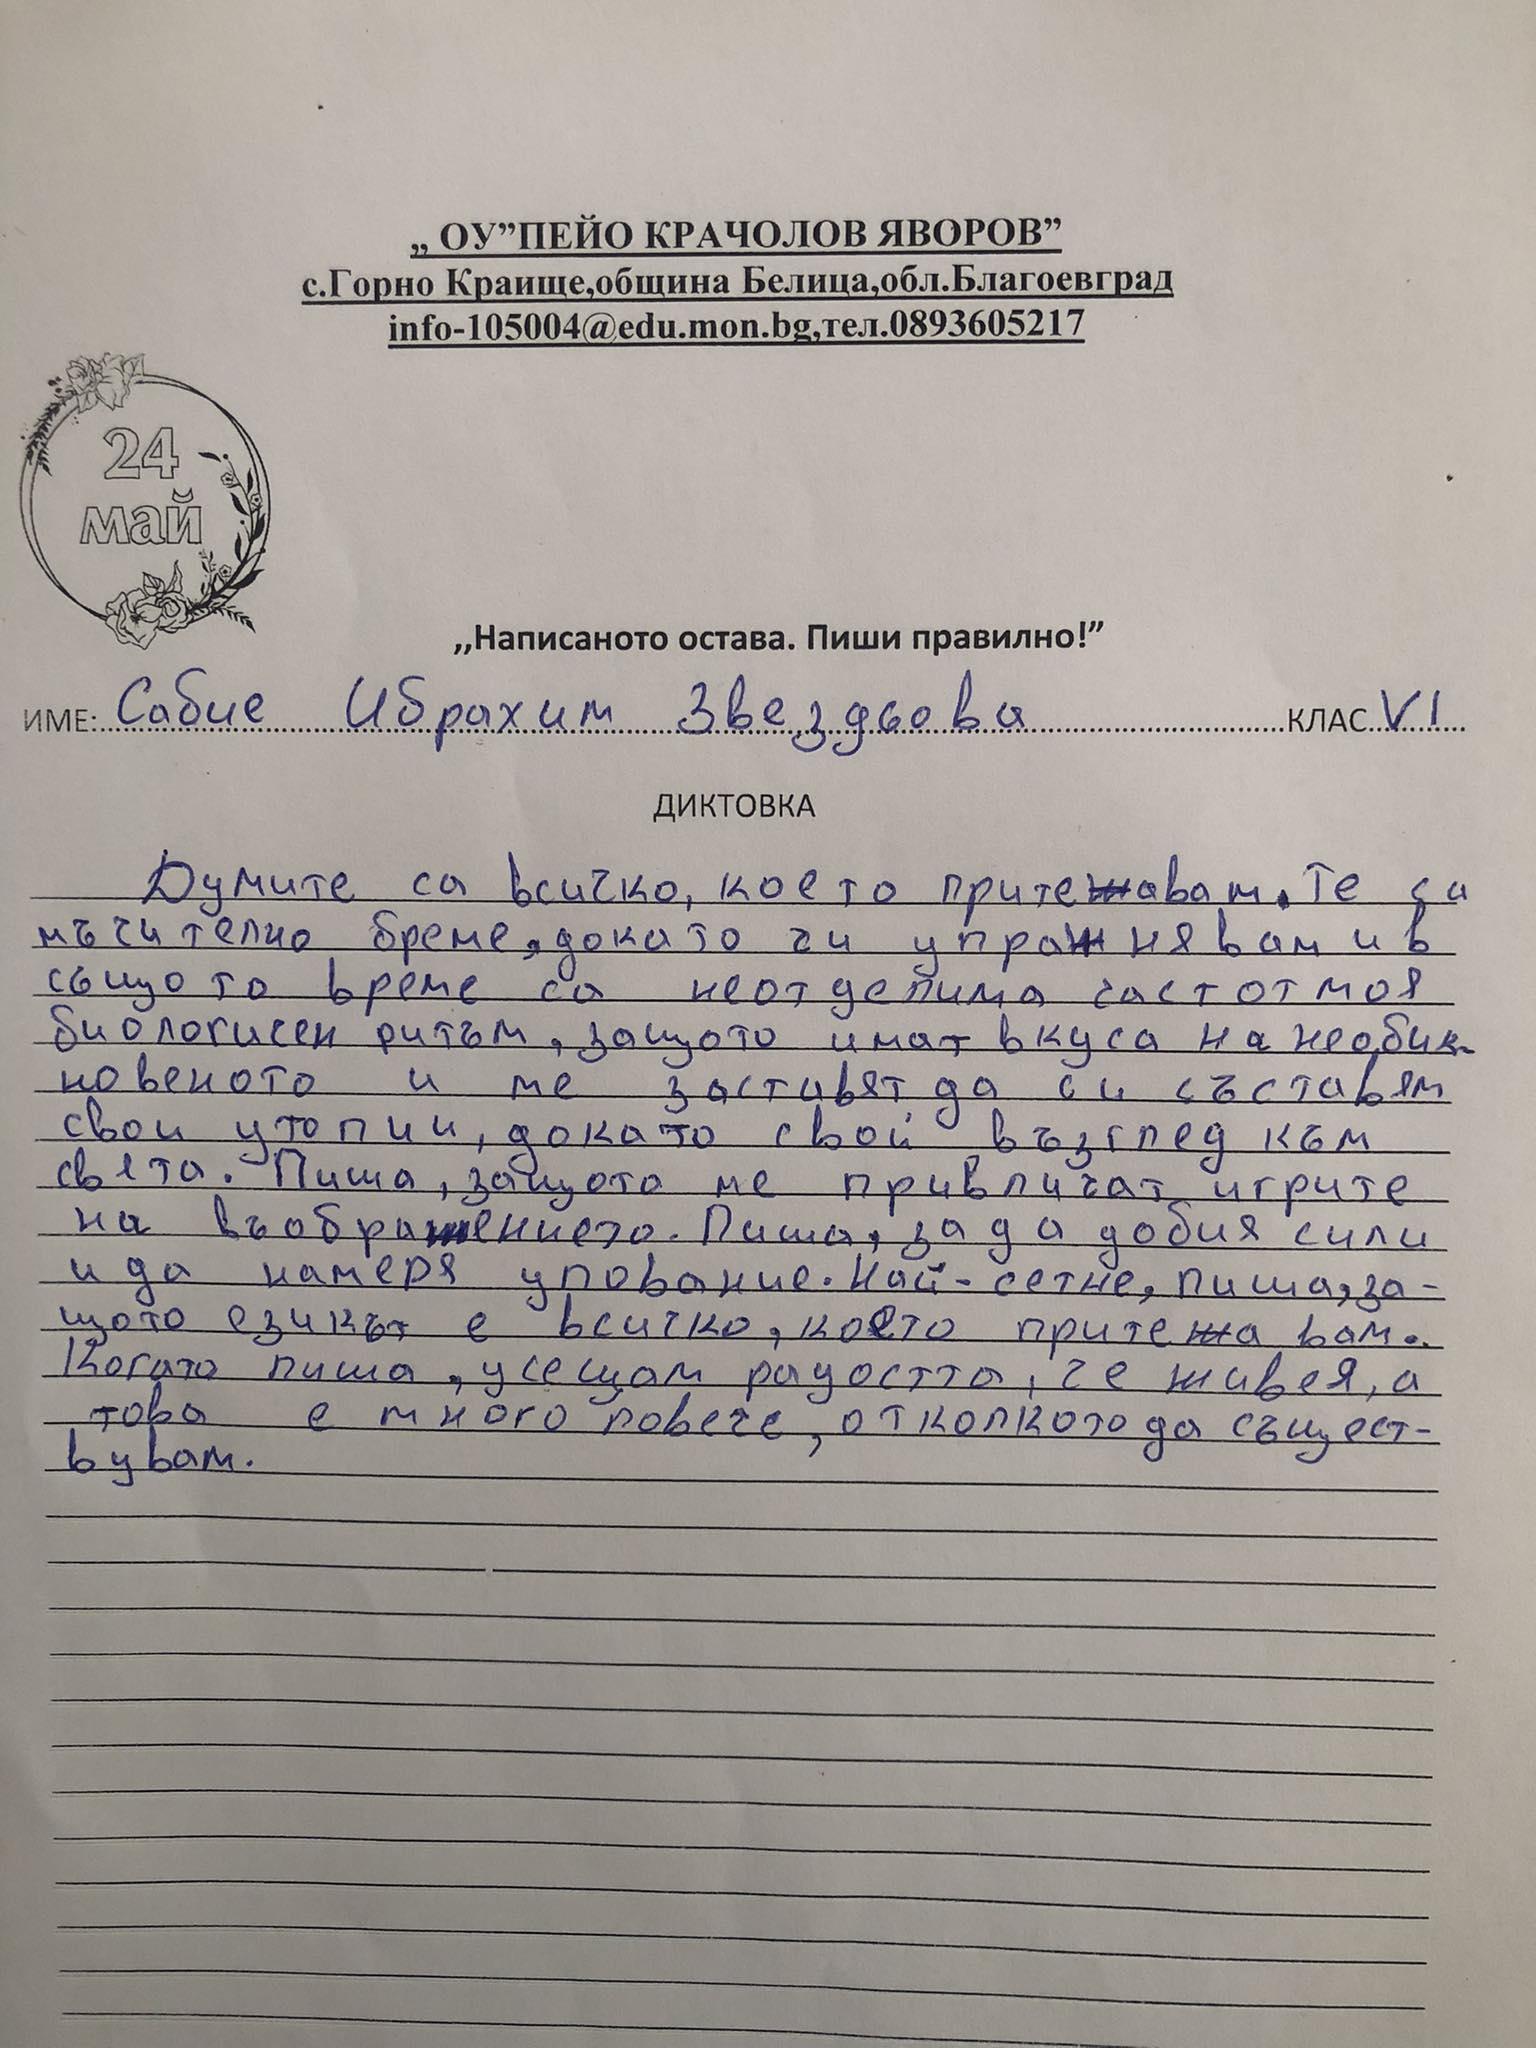 „ ОУ”ПЕЙО КРАЧОЛОВ ЯВОРОВ”
с.Горно Краище,община Белица,обл.Благоевград
info-105004@edu.mon.bg,тел.0893605217
24
май
,,Написаното остава. Пиши правилно!”
ИМЕ: Сабие Ибрахим Звездьова КЛАС VI
ДИКТОВКА
Думите са всичко, което притежавам. Те са
мъчително бреме, докато ги упражнявам и в
същото време са неотделима част от моя
биологисен ритъм, защото имат вкуса на необик-
новеното и ме заставят да си съставям
свои утопии, докато свой възглед към
света. Пиша, защото ме привличат игрите
на въображението. Пиша, за да добия сили
и да намеря упование. Най-сетне, пиша, за-
щото езикът е всичко, което притежавам.
Когато пиша, усещам радостта, че живея, а
това е много повече, отколкото да същест-
вувам.